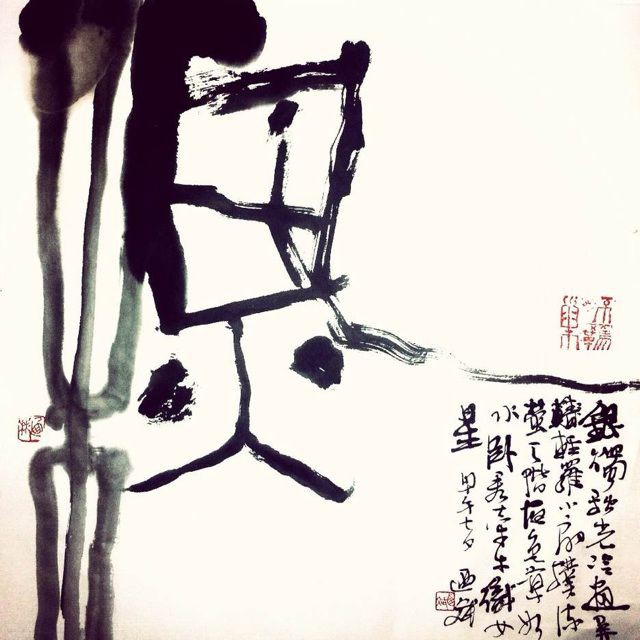 銀燭秋光冷畫屏
輕羅小扇撲流
螢天階夜色涼如
水卧看牽牛織女
星 甲午七夕